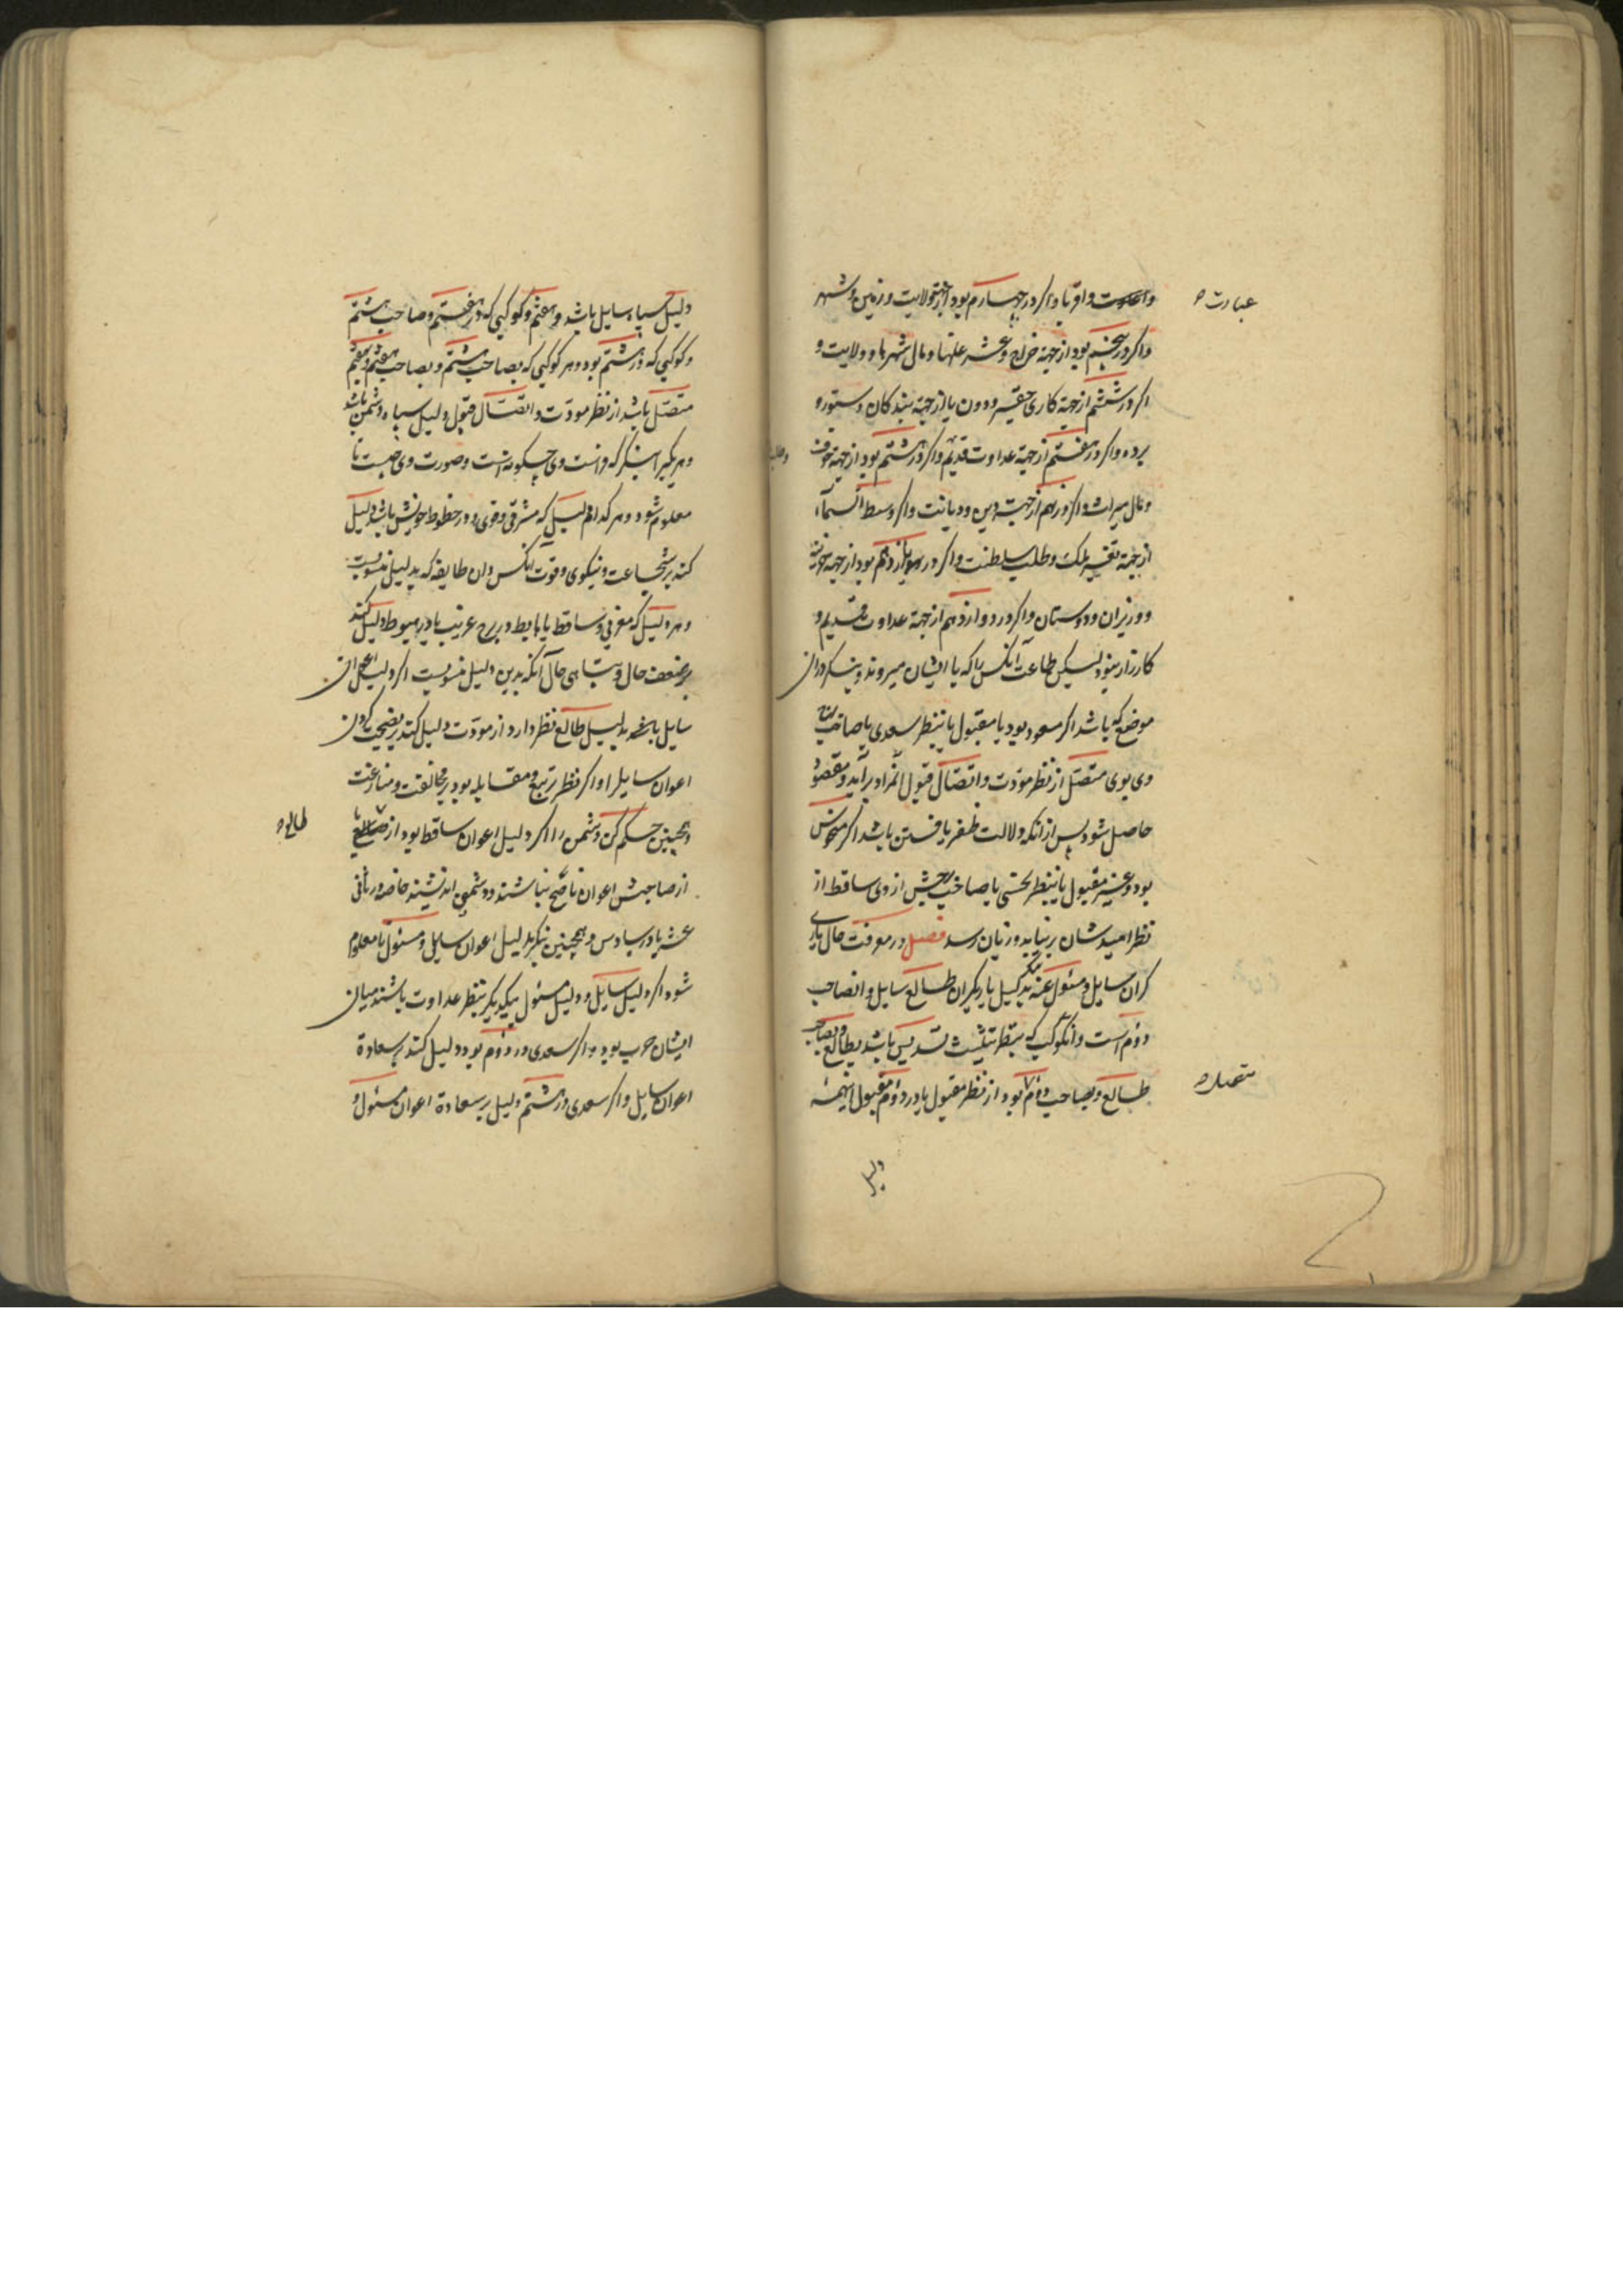 واعدوت واقربا واکر در چهارم بود از جهة ولایت و زمین و شهر
عبارت ه
واکر در پنجم بود از جهة خراج و عشر غلتها و مال شهرها و ولایت و
اکر در ششم از جهة کاری حقیر و دون یا از جهة بندکان و ستور و
برده واکر در هفتم از جهة عداوت قدیم واکر در هشتم بود از جهة خوف
و مال میراث واکر در نهم از جهت دین و دیانت واکر وسط السماء
از جهة تغییر ملک و طلب سلطنت واکر در یازدهم بود از جهة خزینه
و وزیران و دوستان واکر در دوازدهم از جهة عداوت قدیم و
کارزار بنود لیکن طاعت آنکس را که با ایشان میروند و بنکر در ان
موضع که باشد اکر مسعود بود یا مقبول یا بنظر سعدی یا صاحب
وی بوی متصل از نظر مودت و اتصال قبول انمراد برآید و مقصود
حاصل شود پس از انکه دلالت ظفر یافتن باشد اکر منحوس
بود و غیر مقبول یا بنظر نحسی یا صاحب برجش از وی ساقط از
نظر امیدشان برنیاید و زیان رسد فصل در معرفت حال یاری
کران سایل و مسئول عنه بنکر دلیل یاریکران طالع سایل و انصاحب
دوم است و انکوکب که بنظر تثلیث تسدیس باشد بطالع و بصاحب
طالع و بصاحب دوم بود از نظر مقبول یا در دوم مقبول اینهمه
متصل ه
دلیل
دلیل سپاه سایل باشد و هفتم و کوکبی که در هفتم و صاحب هشتم
و کوکبی که در هشتم بود و هر کوکبی که بصاحب هشتم و بصاحب هفتم و بهفتم
متصل باشد از نظر مودت و اتصال قبول دلیل سپاه دشمن باشد
و هر یکیرا بنکر که وی چکونه است و صورت وی چیست تا
معلوم شود و هر کدام دلیل که مشرقی و قوی و در حظوظ خویش باشد دلیل
کند بر شجاعت و نیکوی و قوت آنکس وان طایفه که بدلیل منسوبست
و هر دلیل که مغربی و ساقط یا هابط و در برج غریب یا در هبوط دلیل کند
بر ضعف حال و تباهی حال آنکه بدین دلیل منسوبست اکر دلیل اعوان
سایل بدلیل طالع نظر دارد از مودت دلیل کند بر نصیحت کردن
اعوان سایلرا واکر نظر تربیع و مقابله بود بر مخالفت و منازعت
و همچنین حکم کن دشمن را اکر دلیل اعوان ساقط بود از طالع یا
طالع ه
از صاحبش اعوان ناصح نباشند و دشمنی اندیشند خاصه در ثانی
عشر یا در سادس و همچنین بنکر بدلیل اعوان سایل و مسئول تا معلوم
شود اکر دلیل سایل و دلیل مسئول بیکدیکر بنظر عداوت باشند میان
ایشان حرب بود واکر سعدی در دوم بود دلیل کند بر سعادة
اعوان سایل واکر سعدی در هشتم دلیل بر سعادة اعوان مسئول و